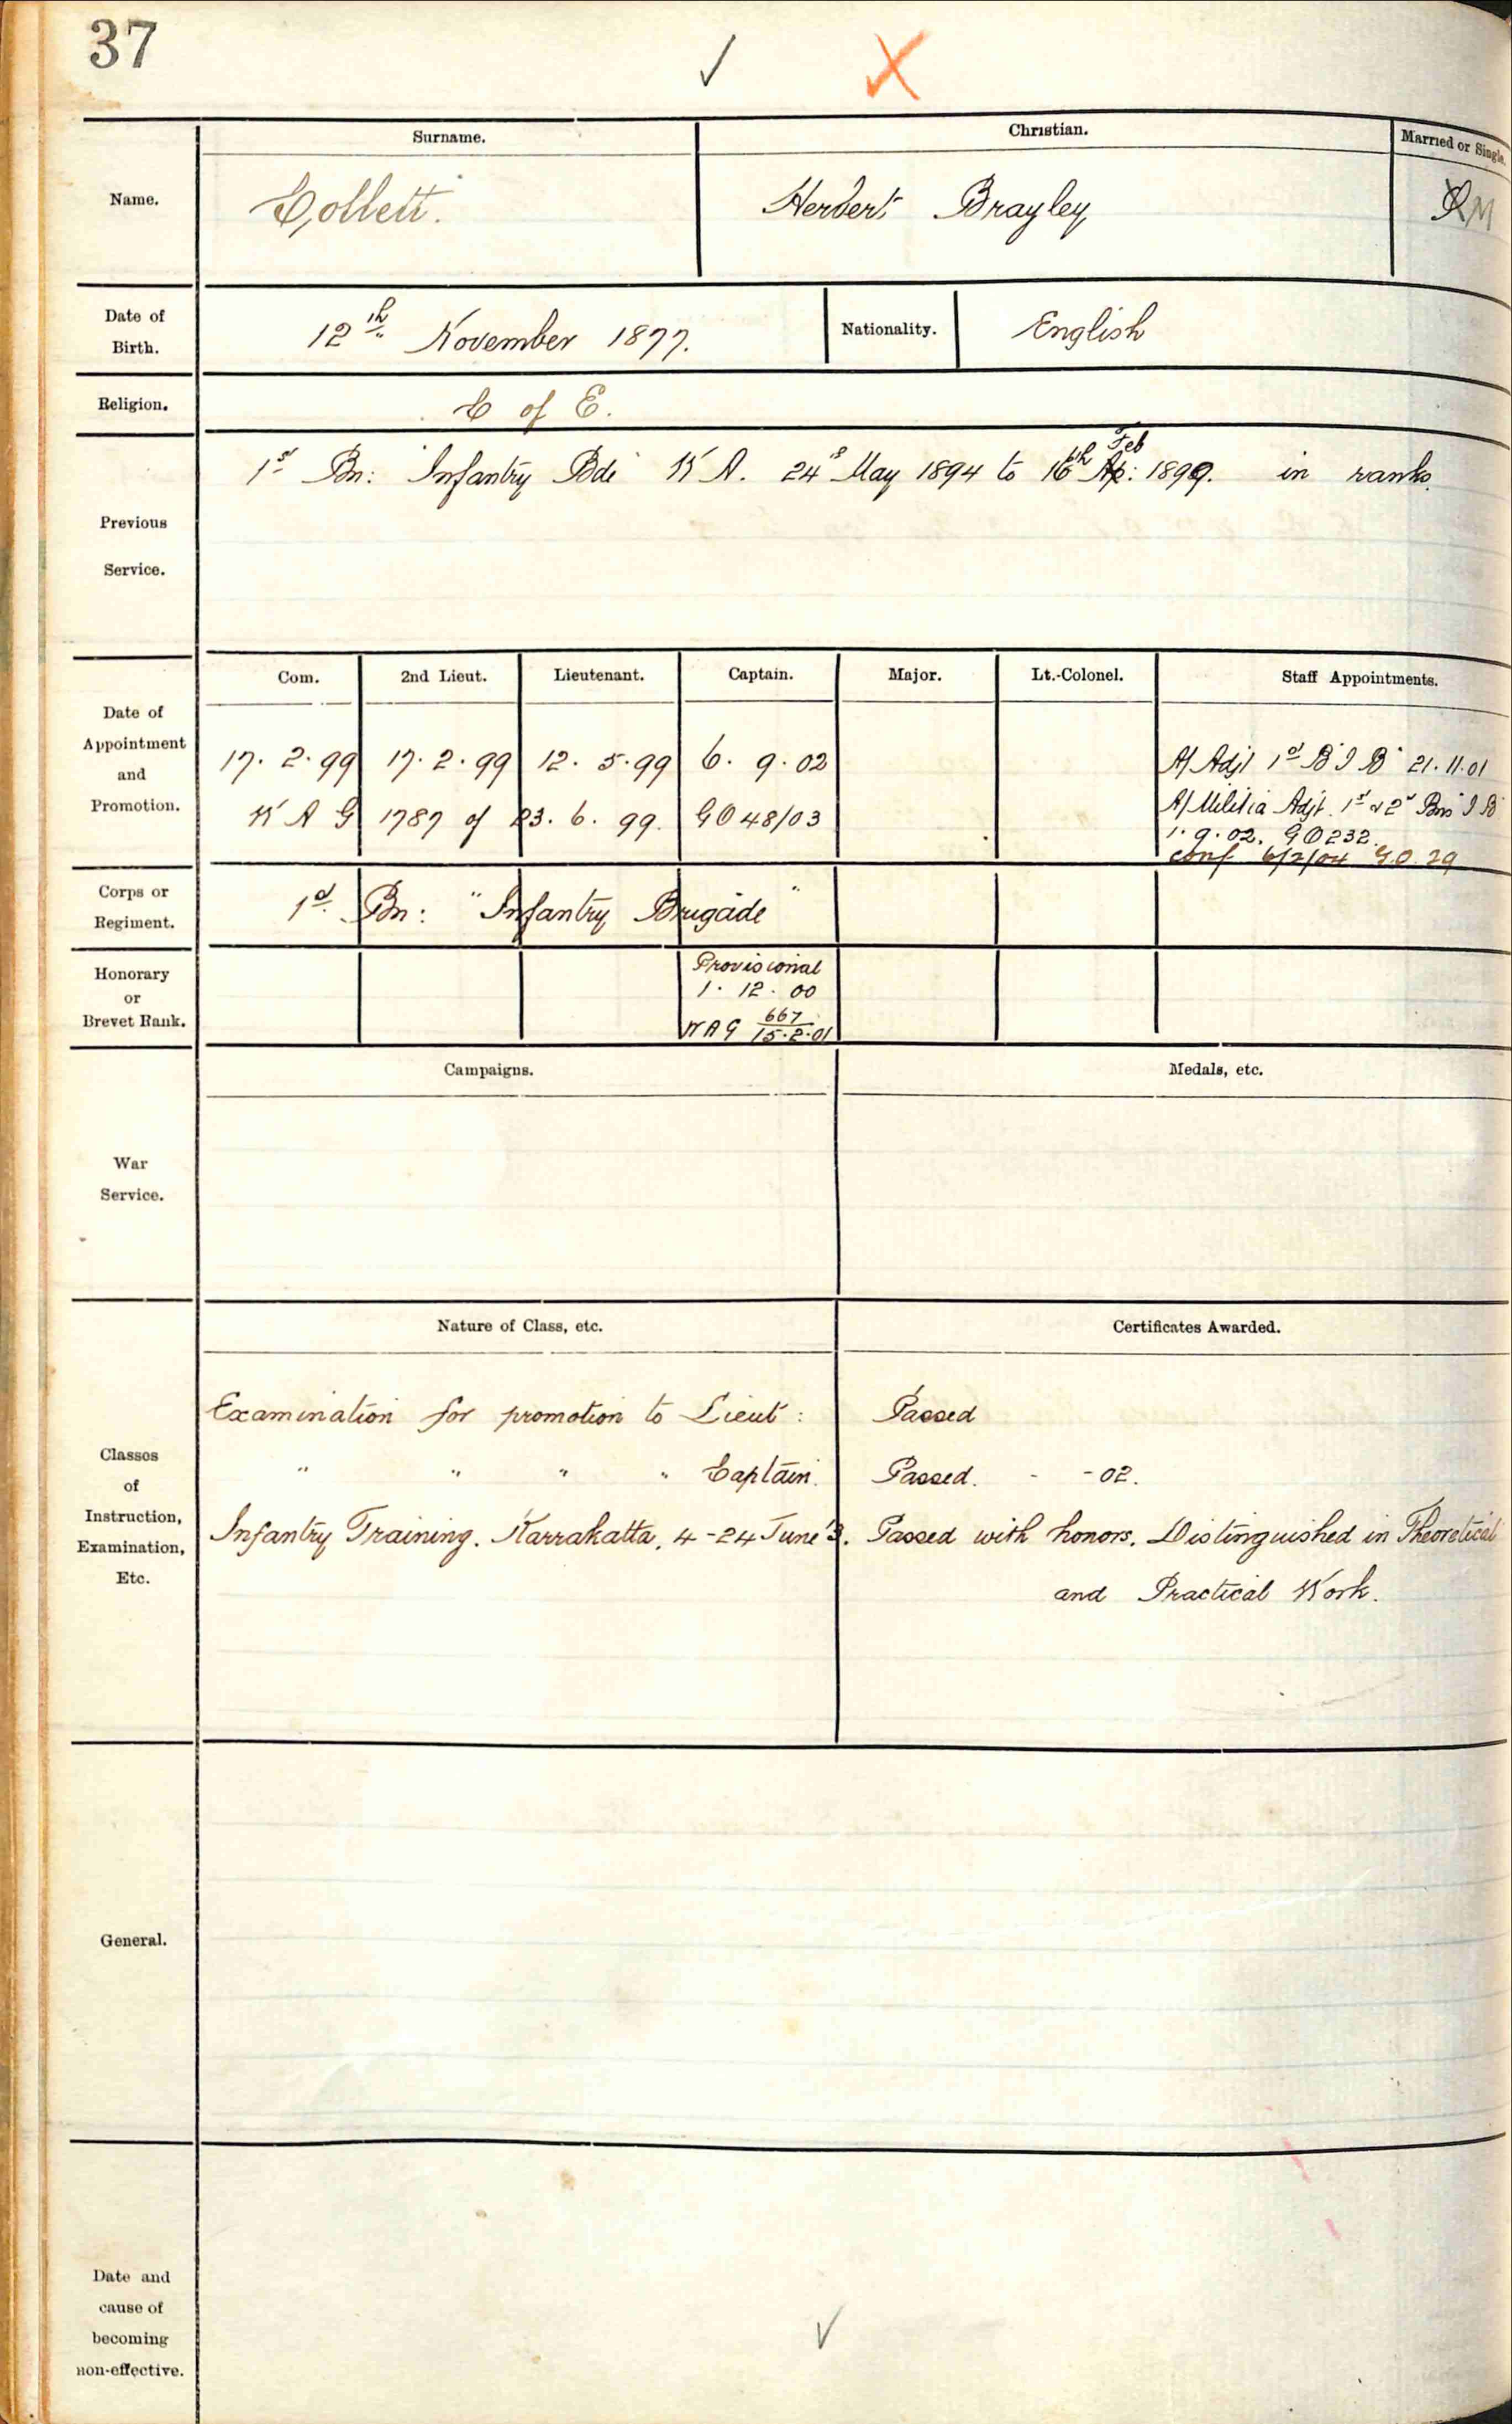 37
Surname.
Christian.
Married or Single.
Name.
Collett.
Herbert Brayley
M
Date of
Birth.
12th November 1877.
Nationality.
English
Religion.
C of E.
Feb
1st Bn: Infantry Bde W A. 24th May 1894 to 16th Ap: 1899. in ranks.
Previous
Service.
Com.
2nd Lieut.
Lieutenant.
Captain.
Major.
Lt.-Colonel.
Staff Appointments.
Date of
Appointment
and
Promotion.
17. 2. 99
17. 2. 99
12. 5. 99
6. 9. 02
A/ Adjt 1st B I B 21. 11. 01
W A G 1787 of 23. 6. 99.
GO 48/03
A/ Militia Adjt. 1st & 2nd Bns I B
1. 9. 02. GO 232.
conf 6/2/04 G.O. 29
Corps or
Regiment.
1st Bn: "Infantry Brigade"
Honorary
or
Brevet Rank.
Provisional
1. 12. 00
WAG 667
15.2.01
Campaigns.
Medals, etc.
War
Service.
Nature of Class, etc.
Certificates Awarded.
Classes
of
Instruction,
Examination,
Etc.
Examination for promotion to Lieut:
Passed
" " " " Captain.
Passed. - -02.
Infantry Training. Karrakatta, 4-24 June '3.
Passed with honors. Distinguished in Theoretical
and Practical Work.
General.
Date and
cause of
becoming
non-effective.